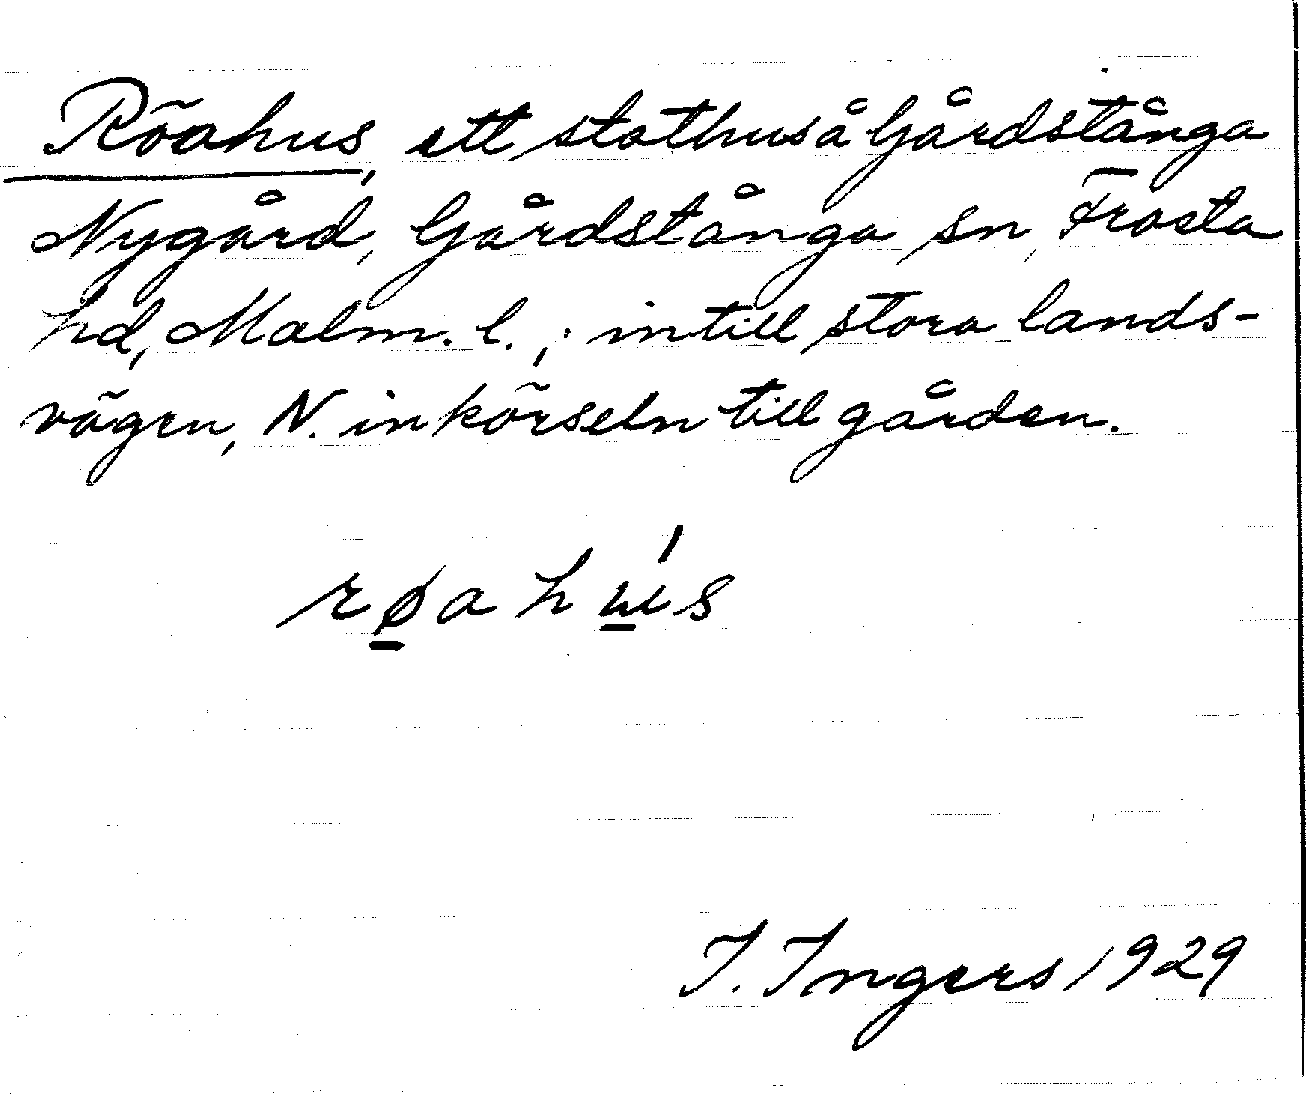 Röahus, ett stathus å Gårdstånga
Nygård, Gårdstånga sn, Frosta
hd, Malm. l.; intill stora lands-
vägen, N. inkörseln till gården.
rø̲ahu̲ís
I. Ingers 1929